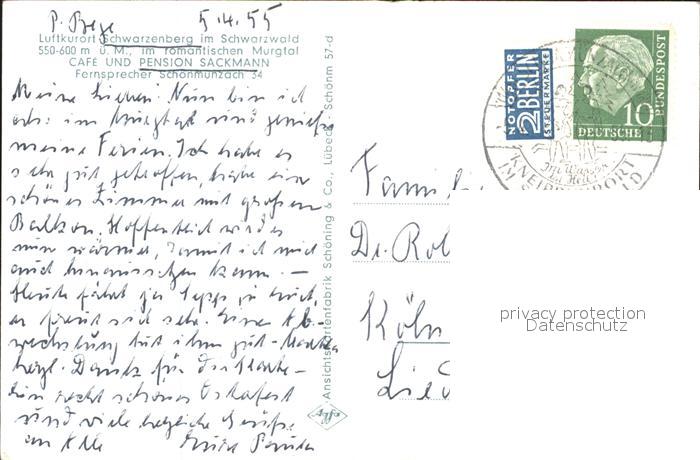 5.4.55
Luftkurort Schwarzenberg im Schwarzwald
550-600 m ü. M., im romantischen Murgtal
CAFÉ UND PENSION SACKMANN
Fernsprecher Schönmünzach 34
Meine Lieben! Nun bin ich
im Murgtal und genieße
meine Ferien. Ich habe es
sehr gut getroffen, habe ein
schönes Zimmer mit großem
Balkon. Hoffentlich wird es
nun wärmer, damit ich mich
auch hinaussetzen kann. —
Heute fährt ja Sepp zu Euch,
er freut sich sehr. Eine Ab-
wechslung tut ihm gut.
herzl. Dank für die Karte.
Ein recht schönes Osterfest
und viele herzliche Grüße
an Alle
Ansichtskartenfabrik Schöning & Co., Lübeck
Schönm 57-d
NOTOPFER
2 BERLIN
STEUERMARKE
10
DEUTSCHE
BUNDESPOST
KNEIPPKURORT
IM
Famil
Dr. Rol
Köln
Lie
privacy protection
Datenschutz